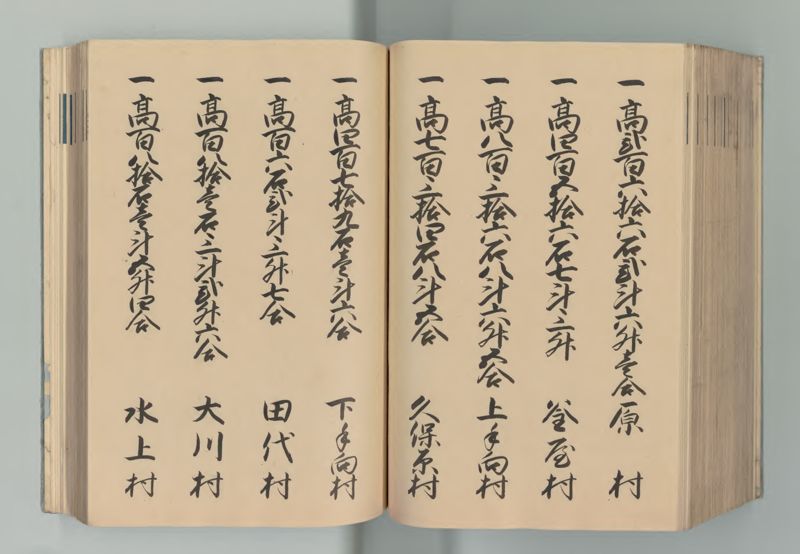 一高弐百六拾六石弐斗六升壱合 原村
一高四百五拾六石七斗三升 釜屋村
一高八百三拾六石八斗六升五合 上手向村
一高七百三拾四石八斗五合 久保原村
一高四百七拾九石壱斗六合 下手向村
一高百六石弐斗三升七合 田代村
一高百八拾壱石三斗弐升六合 大川村
一高百八拾石壱斗五升四合 水上村